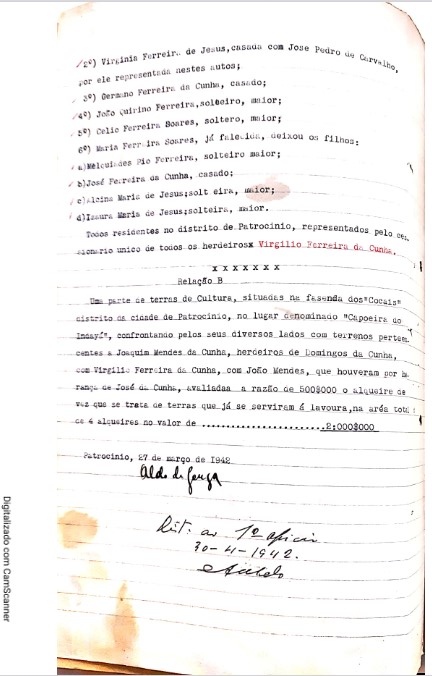 2º) Virginia Ferreira de Jesus,casada com José Pedro de Carvalho,
por ele representada nestes autos;
3º) Germano Ferreira da Cunha, casado;
4º) João Quirino Ferreira,solteiro, maior;
5º) Celio Ferreira Soares, soltero, maior;
6º) Maria Ferreira Soares, já falecida, deixou os filhos:
a)Melquiades Pio Ferreira, solteiro maior;
b)José Ferreira da Cunha, casado;
c)Alcina Maria de Jesus;solt eira, maior;
d)Izaura Maria de Jesus;solteira, maior.
Todos residentes no distrito de Patrocinio, representados pelo ces
sionario unico de todos os herdeirosx Virgilio Ferreira da Cunha.
x x x x x x x
Relação B
Uma parte de terras de Cultura, situadas na fasenda dos"Cocais"
distrito da cidade de Patrocinio, no lugar denominado "Capoeira do
Indayá", confrontando pelos seus diversos lados com terrenos perten
centes a Joaquim Mendes da Cunha, herdeiros de Domingos da Cunha,
com Virgilio Ferreira da Cunha, com João Mendes, que houveram por he
rança de José da Cunha, avaliadaa a razão de 500$000 o alqueire de
vez que se trata de terras que já se serviram á lavoura,na aréa total
de 4 alqueires no valor de ........................2:000$000
Patrocinio, 27 de março de 1942
Dist. ao 1º oficio
30-4-1942.
Digitalizado com CamScanner